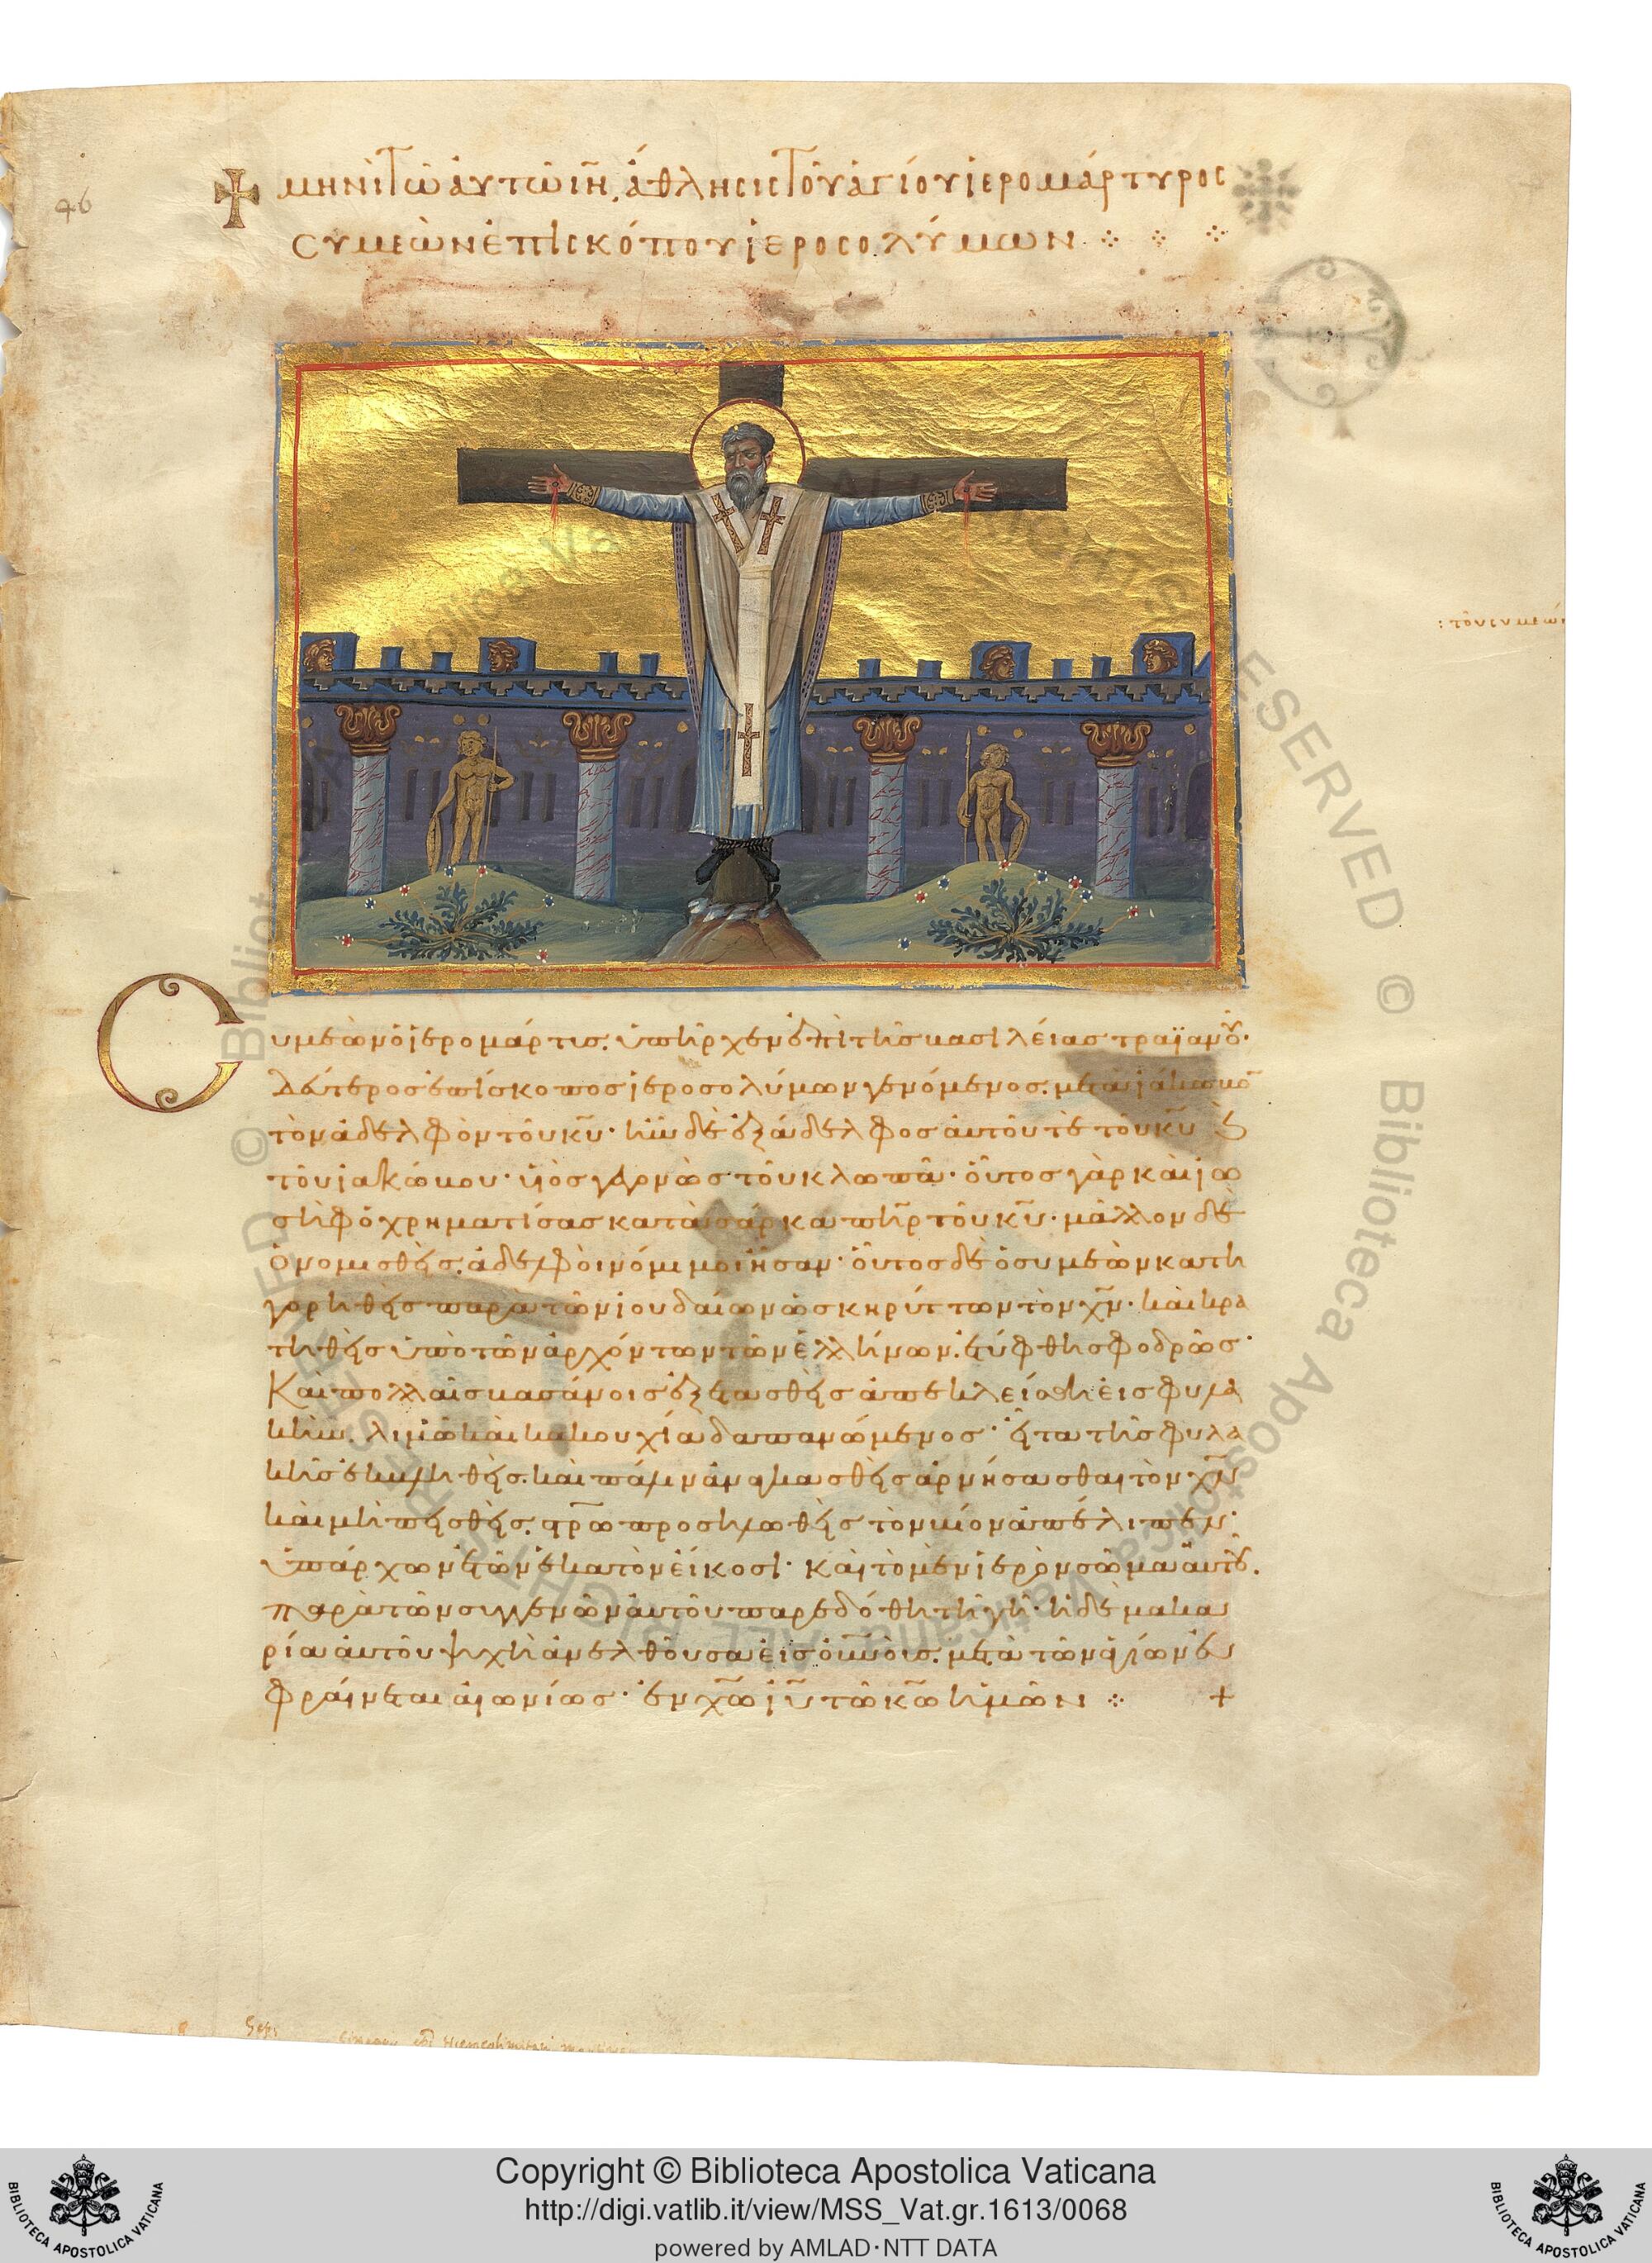 46
μηνὶ τῶ αὐτῶ ιη, ἄθλησις τοῦ ἁγίου ἱερομάρτυρος
συμεὼν ἐπισκόπου ἱεροσολύμων
Συμεὼν ὁ ἱερομάρτυς. ὑπῆρχεν ἐπὶ τῆς βασιλείας τραϊανοῦ·
δεύτερος ἐπίσκοπος ἱεροσολύμων γενόμενος. μετὰ ἰάκωβον
τὸν ἀδελφὸν τοῦ κυ· ἦν δὲ ἐξάδελφος αὐτοῦ τε τοῦ κυ ϗ
τοῦ ἰακώβου· υἱὸς γὰρ ἦν ὡς τοῦ κλωπᾶ· οὗτος γὰρ καὶ ἰω
σὴφ ὁ χρηματίσας κατὰ σάρκα πηρ τοῦ κυ· μᾶλλον δὲ
ὁ νομισθεὶς. ἀδελφοὶ νόμιμοι ἦσαν· οὗτος δὲ ὁ συμεὼν κατη
γορηθεὶς παρὰ τῶν ἰουδαίων ὡς κηρύττων τὸν χν· καὶ κρα
τηθεὶς ὑπὸ τῶν ἀρχόντων τῶν ἑλλήνων. ἐτύφθη σφοδρῶς·
Καὶ πολλαῖς βασάνοις ἐξετασθεὶς ἀπεκλείσθη εἰς φυλα
κὴν. λιμῶ καὶ κακουχία δαπανώμενος· εἶτα τῆς φυλα
κῆς ἐκβληθεὶς. καὶ πάλιν ἀναγκασθεὶς ἀρνήσασθαι τὸν χν
καὶ μὴ πεισθεὶς. στρω προσηλωθεὶς τὸν βίον ἀπέλιπεν·
ὑπάρχων ἐτῶν ἑκατὸν εἴκοσι· καὶ τὸ μὲν ἱερὸν σῶμα αὐτοῦ.
παρὰ τῶν συγγενῶν αὐτοῦ παρεδόθη τῆ γῆ· ἡ δὲ μακα
ρία αὐτοῦ ψυχὴ ἀνελθοῦσα εἰς οὐνοὺς. μετὰ τῶν ἁγίων εὐ
φραίνεται αἰωνίως· ἐν χω ιυ τῶ κω ἡμῶν +
Copyright © Biblioteca Apostolica Vaticana
http://digi.vatlib.it/view/MSS_Vat.gr.1613/0068
powered by AMLAD·NTT DATA
BIBLIOTECA APOSTOLICA VATICANA
BIBLIOTECA APOSTOLICA VATICANA